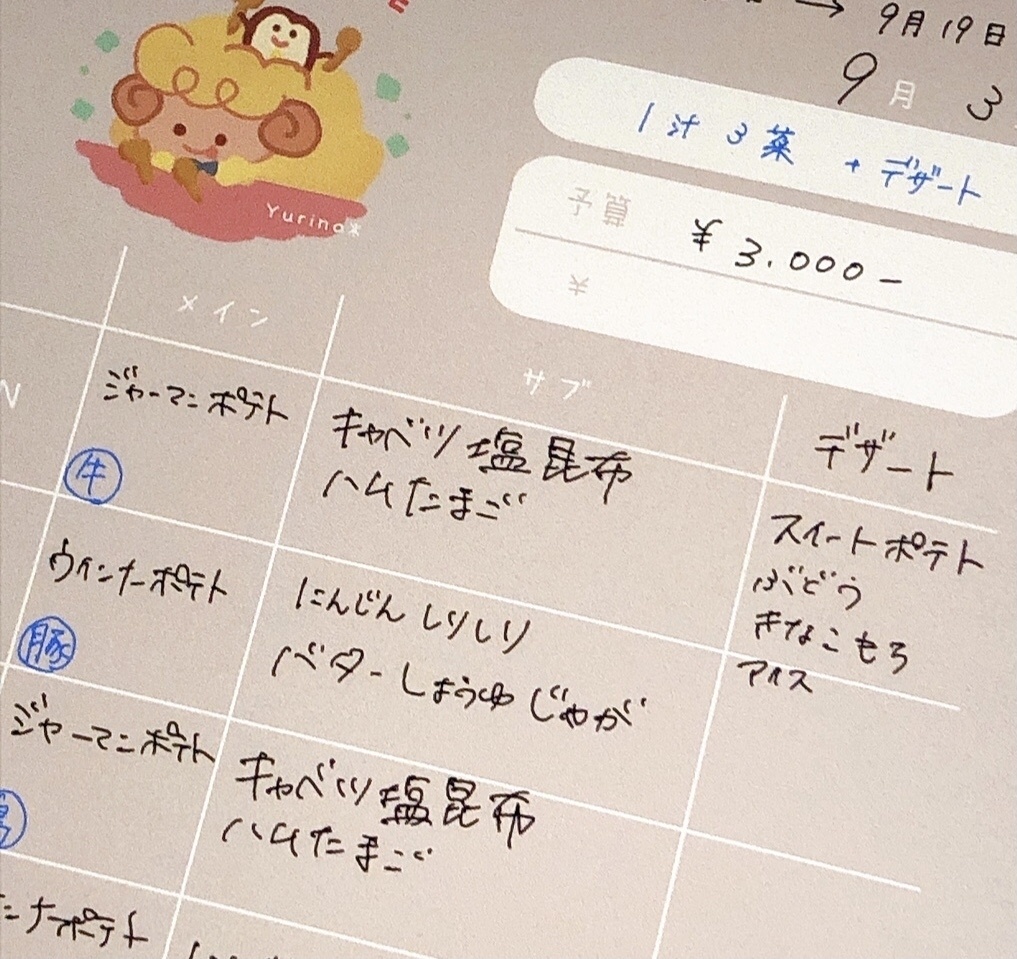 → 9月19日
9月 3
1汁3菜 + デザート
予算 ¥3.000-
¥
Yurina*
メイン
サブ
デザート
ジャーマンポテト
牛
キャベツ塩昆布
ハムたまご
スイートポテト
ぶどう
きなこもち
アイス
ウインナーポテト
豚
にんじんしりしり
バターしょうゆじゃが
ジャーマンポテト
キャベツ塩昆布
ハムたまご
ナーポテト